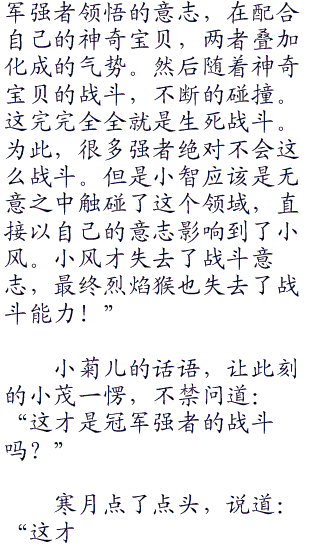 军强者领悟的意志，在配合
自己的神奇宝贝，两者叠加
化成的气势。然后随着神奇
宝贝的战斗，不断的碰撞。
这完完全全就是生死战斗。
为此，很多强者绝对不会这
么战斗。但是小智应该是无
意之中触碰了这个领域，直
接以自己的意志影响到了小
风。小风才失去了战斗意
志，最终烈焰猴也失去了战
斗能力！”
小菊儿的话语，让此刻
的小茂一愣，不禁问道：
“这才是冠军强者的战斗
吗？”
寒月点了点头，说道：
“这才